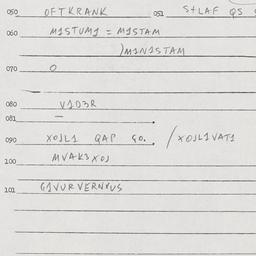 050 OFTKRANK 051 S+LAF QS
060 M1STUM1 = M1STAM
)M1N1STAM
070 O
080 V1D3R
081 —
090 XOJL1 QAP GO. / XOJL1VAT1
100 MVAK3XOJ
101 G1VURVERNXUS